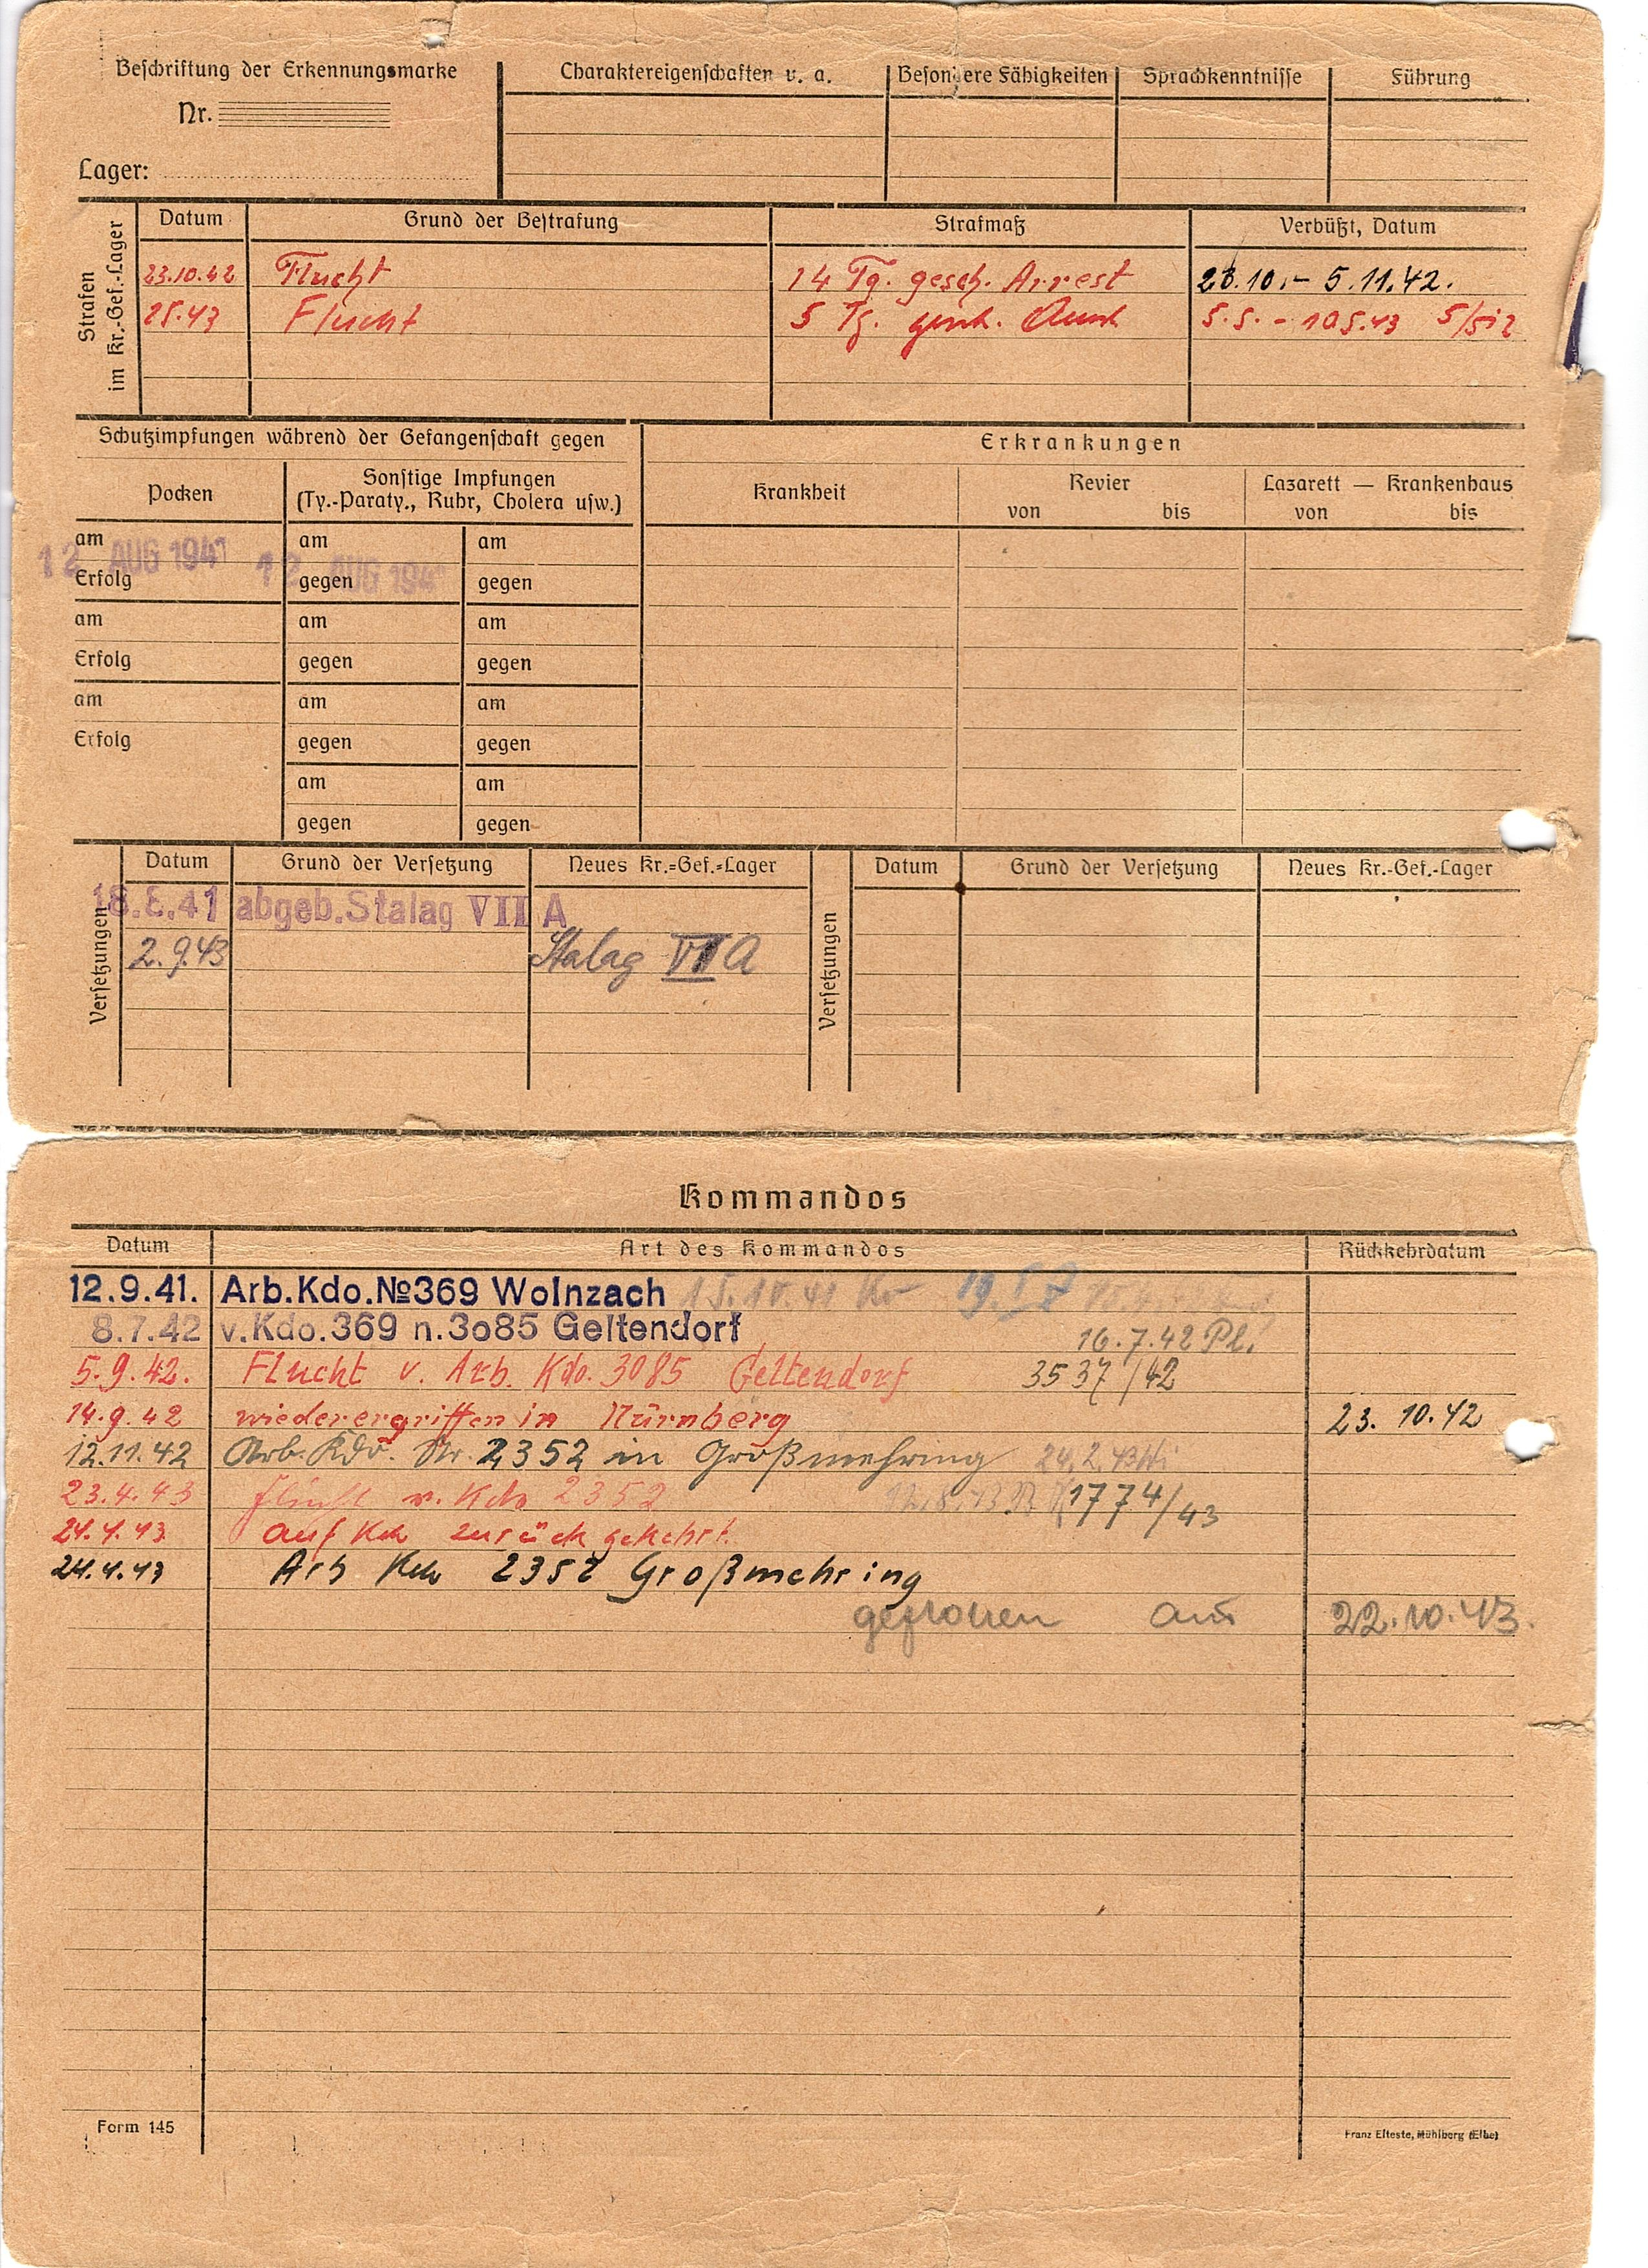 Beschriftung der Erkennungsmarke
Nr.
Lager:
Charaktereigenschaften u. a.
Besondere Fähigkeiten
Sprachkenntnisse
Führung
Strafen im Kr.-Gef.-Lager
Datum Grund der Bestrafung Strafmaß Verbüßt, Datum
23.10.42 Flucht 14 Tg. gesch. Arrest 23.10.- 5.11.42.
2.5.43 Flucht 5 Tg. 5.5. - 10.5.43
Schutzimpfungen während der Gefangenschaft gegen
Pocken
Sonstige Impfungen
(Ty.-Paraty., Ruhr, Cholera usw.)
am am am
12 AUG 1941 12 AUG 194
Erfolg gegen gegen
am am am
Erfolg gegen gegen
am am am
Erfolg gegen gegen
am am
gegen gegen
Erkrankungen
Krankheit
Revier
von bis
Lazarett — Krankenhaus
von bis
Versetzungen
Datum Grund der Versetzung Neues Kr.=Gef.=Lager
18.8.41 abgeb. Stalag VII A
2.9.43 Stalag VII A
Versetzungen
Datum Grund der Versetzung Neues Kr.-Gef.-Lager
Kommandos
Datum Art des Kommandos Rückkehrdatum
12.9.41. Arb.Kdo.№369 Wolnzach 15.10.41
8.7.42 v.Kdo.369 n.3o85 Geltendorf 16.7.42 Pl.
5.9.42. Flucht v. Arb. Kdo. 3085 Geltendorf 3537/42
14.9.42 wiederergriffen in Nürnberg 23.10.42
12.11.42 Arb. Kdo. Nr. 2352 in Großmehring 24.2.43
23.4.43 Flucht v. Kdo 2352 1774/43
24.4.43 auf Kdo zurückgekehrt.
24.4.43 Arb Kdo 2352 Großmehring
geflohen am 22.10.43.
Form 145
Franz Elteste, Mühlberg (Elbe)